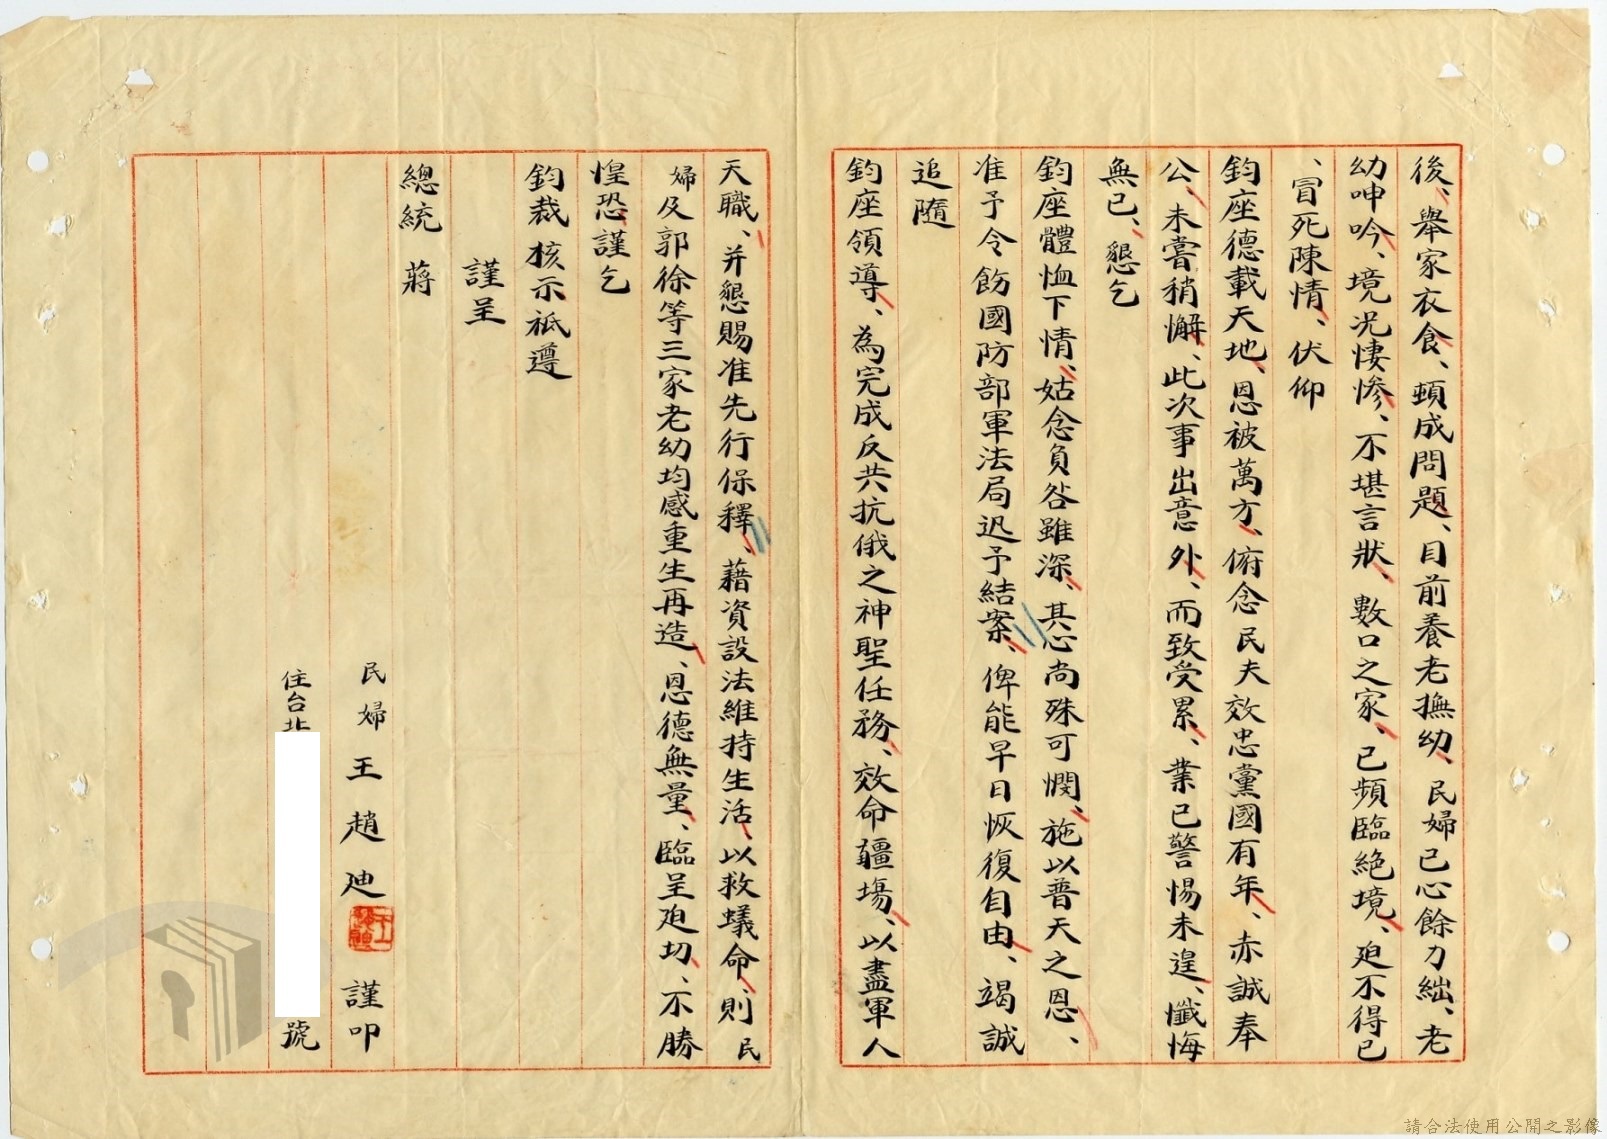 後、舉家衣食、頓成問題、目前養老撫幼、民婦已心餘力絀、老
幼呻吟、境况悽慘、不堪言狀、數口之家、已頻臨絕境、廹不得已
、冒死陳情、伏仰
鈞座德載天地、恩被萬方、俯念民夫效忠黨國有年、赤誠奉
公、未嘗稍懈、此次事出意外、而致受累、業已警惕未遑、懺悔
無已、懇乞
鈞座體恤下情、姑念負咎雖深、其心尚殊可憫、施以普天之恩、
准予令飭國防部軍法局迅予結案、俾能早日恢復自由、竭誠
追隨
鈞座領導、為完成反共抗俄之神聖任務、效命疆場、以盡軍人
天職、并懇賜准先行保釋、藉資設法維持生活、以救蟻命、則民
婦及郭徐等三家老幼均感重生再造、恩德無量、臨呈廹切、不勝
惶恐、謹乞
鈞裁核示祗遵
謹呈
總統 蔣
民婦王趙廸 謹叩
住台北
號
請合法使用公開之影像